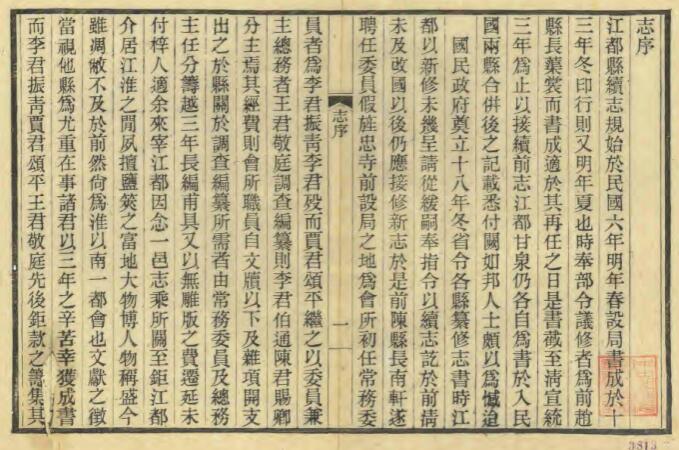 志序
江都縣續志規始於民國六年明年春設局書成於十
三年冬印行則又明年夏也時奉部令議修者爲前趙
縣長葉裳而書成適於其再任之日是書截至淸宣統
三年爲止以接續前志江都甘泉仍各自爲書於入民
國兩縣合併後之記載悉付闕如邦人士頗以爲憾迨
國民政府奠立十八年冬省令各縣纂修志書時江
都以新修未幾呈請從緩嗣奉指令以續志訖於前淸
未及改國以後仍應接修新志於是前陳縣長南軒遂
聘任委員假旌忠寺前設局之地爲會所初任常務委
志序
一
員者爲李君振靑李君歿而賈君頌平繼之以委員兼
主總務者王君敬庭調查編纂則李君伯通陳君賜卿
分主焉其經費則會所職員自文牘以下及雜項開支
出之於縣關於調查編纂所需者由常務委員及總務
主任分籌越三年長編甫具又以無雕版之費遷延未
付梓人適余來宰江都因念一邑志乘所關至鉅江都
介居江淮之閒夙擅鹽筴之富地大物博人物稱盛今
雖凋敝不及於前然尙爲淮以南一都會也文獻之徵
當視他縣爲尤重在事諸君以三年之辛苦幸獲成書
而李君振靑賈君頌平王君敬庭先後鉅款之籌集其
3813